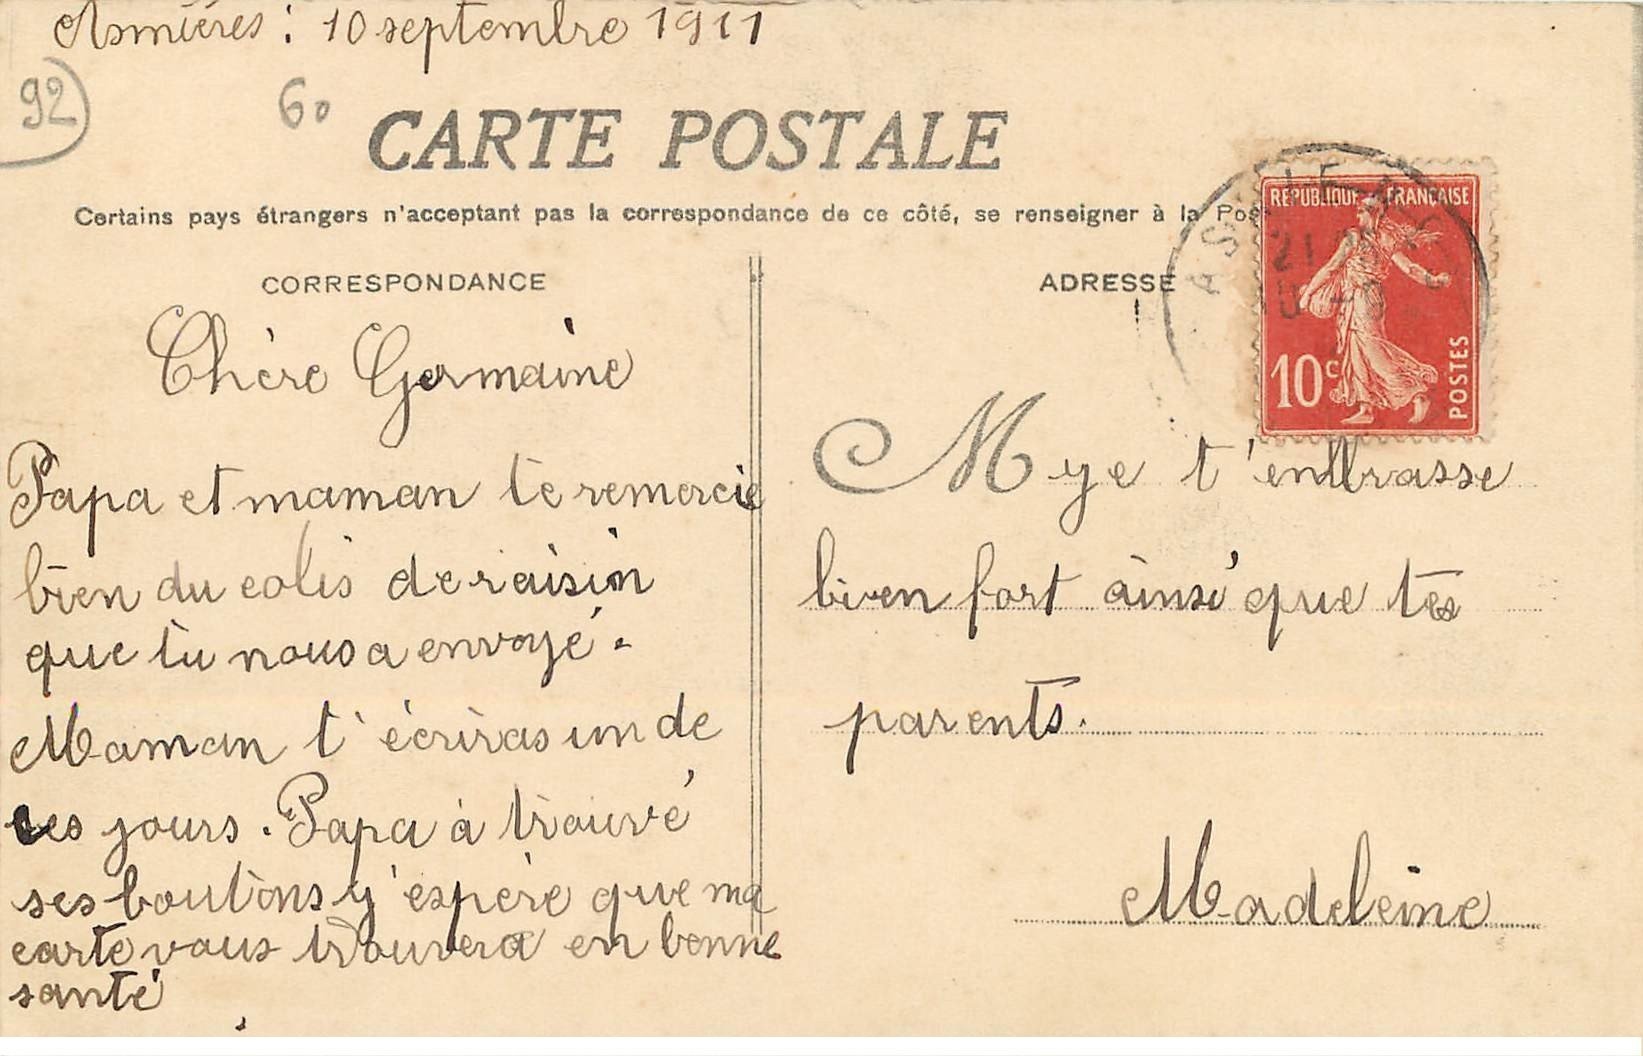 Asnières : 10 septembre 1911
92
60
CARTE POSTALE
Certains pays étrangers n'acceptant pas la correspondance de ce côté, se renseigner à la Pos
CORRESPONDANCE
Chère Germaine
Papa et maman te remercie
bien du colis de raisin
que tu nous a envoyé.
Maman t'écriras un de
ces jours. Papa à trouvé
ses boutons j'espère que ma
carte vous trouvera en bonne
santé
ADRESSE
RÉPUBLIQUE FRANÇAISE
10c
POSTES
M je t'embrasse
bien fort ainsi que tes
parents.
Madeleine